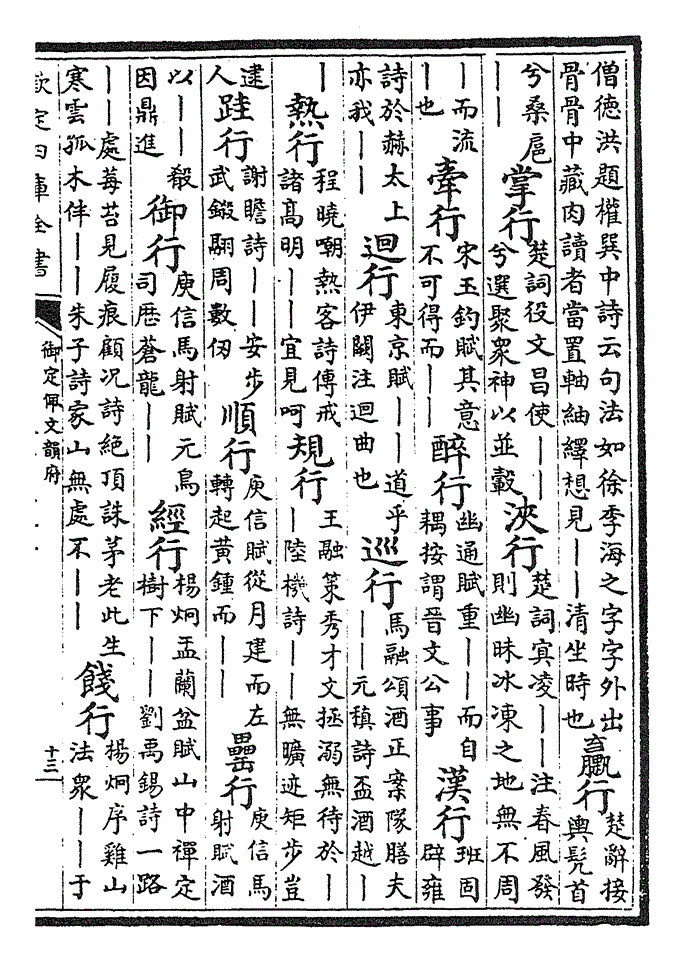 僧德洪題權巽中詩云句法如徐季海之字字外出骨骨中藏肉讀者當置軸紬繹想見——清坐時也臝行楚辭接輿髡首
兮桑扈——掌行楚詞役文昌使——兮選聚衆神以並轂浹行楚詞冥凌——注春風發則幽昧冰凍之地無不周
—而流——也牽行宋玉釣賦其意不可得而——醉行幽通賦重——而自耦按謂晉文公事漢行班固辟雍
詩於赫太上亦我——迴行東京賦——道乎伊闕注迴曲也巡行馬融頌酒正案隊膳夫——元稹詩盃酒越—
—熱行程曉嘲熱客詩傳戒諸高明——宜見呵規行王融策秀才文拯溺無待於——陸機詩——無曠迹矩步豈
逮人跬行謝瞻詩——安步武鎩翮周數仞順行庾信賦從月建而左轉起黃鍾而——罍行庾信馬射賦酒
以——殽因鼎進御行庾信馬射賦元鳥司歴蒼龍——經行楊炯盂蘭盆賦山中禪定樹下——劉禹錫詩一路
——處莓苔見履痕顧况詩絶頂誅茅老此生寒雲孤木伴——朱子詩家山無處不——餞行楊炯序雞山法衆——于
欽定四庫全書
御定佩文韻府
十三